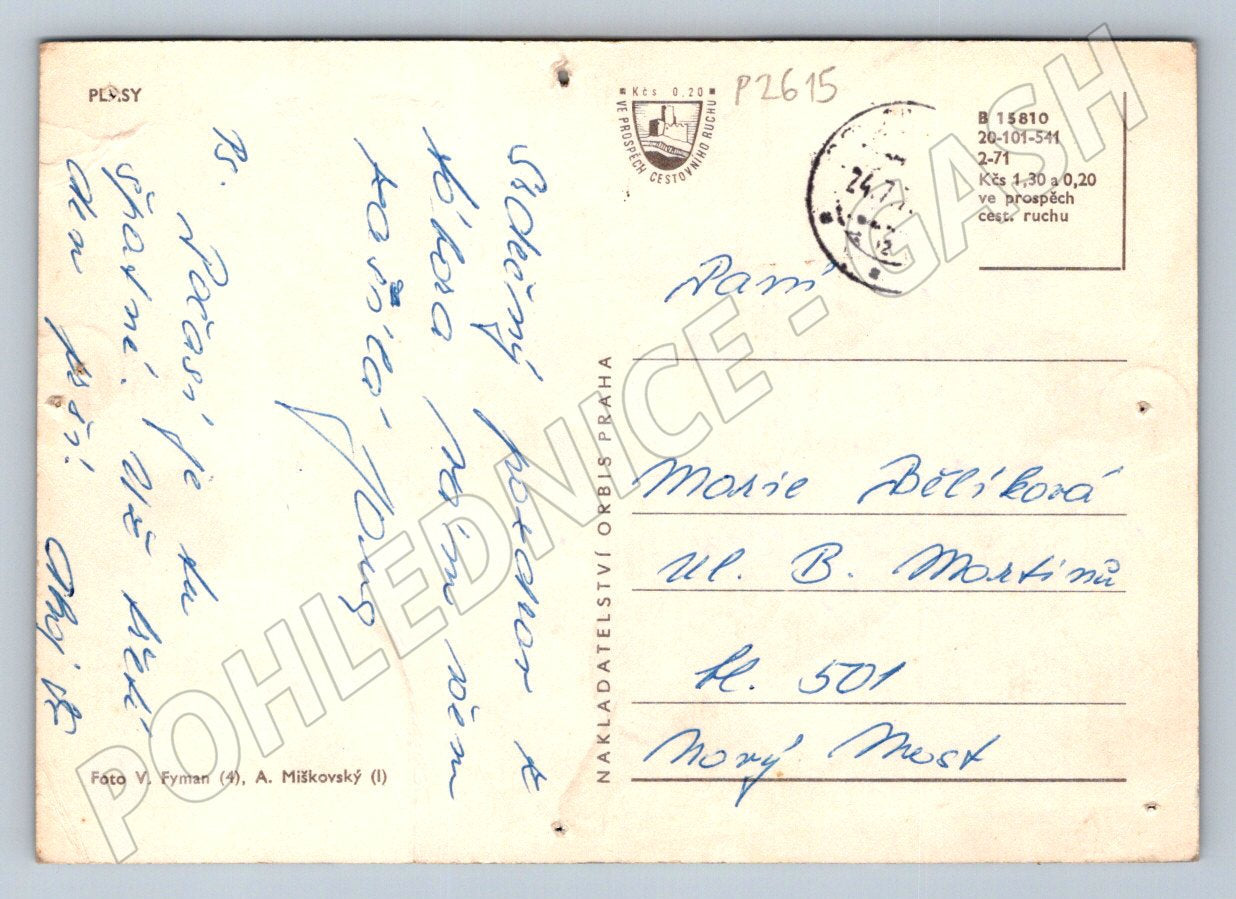 PLASY
Kčs 0,20
VE PROSPĚCH CESTOVNÍHO RUCHU
P2615
B 15810
20-101-541
2-71
Kčs 1,30 a 0,20
ve prospěch
cest. ruchu
24.7.
Srdečný pozdrav z
tábora vám všem
posílá
Ps. Počasí je tu
špatné. Už třetí
den prší.
Ahoj
Foto V. Fyman (4), A. Miškovský (I)
NAKLADATELSTVÍ ORBIS PRAHA
Paní
Marie Bělíková
Ul. B. Martinů
bl. 501
Nový Most
POHLEDNICE - GASH